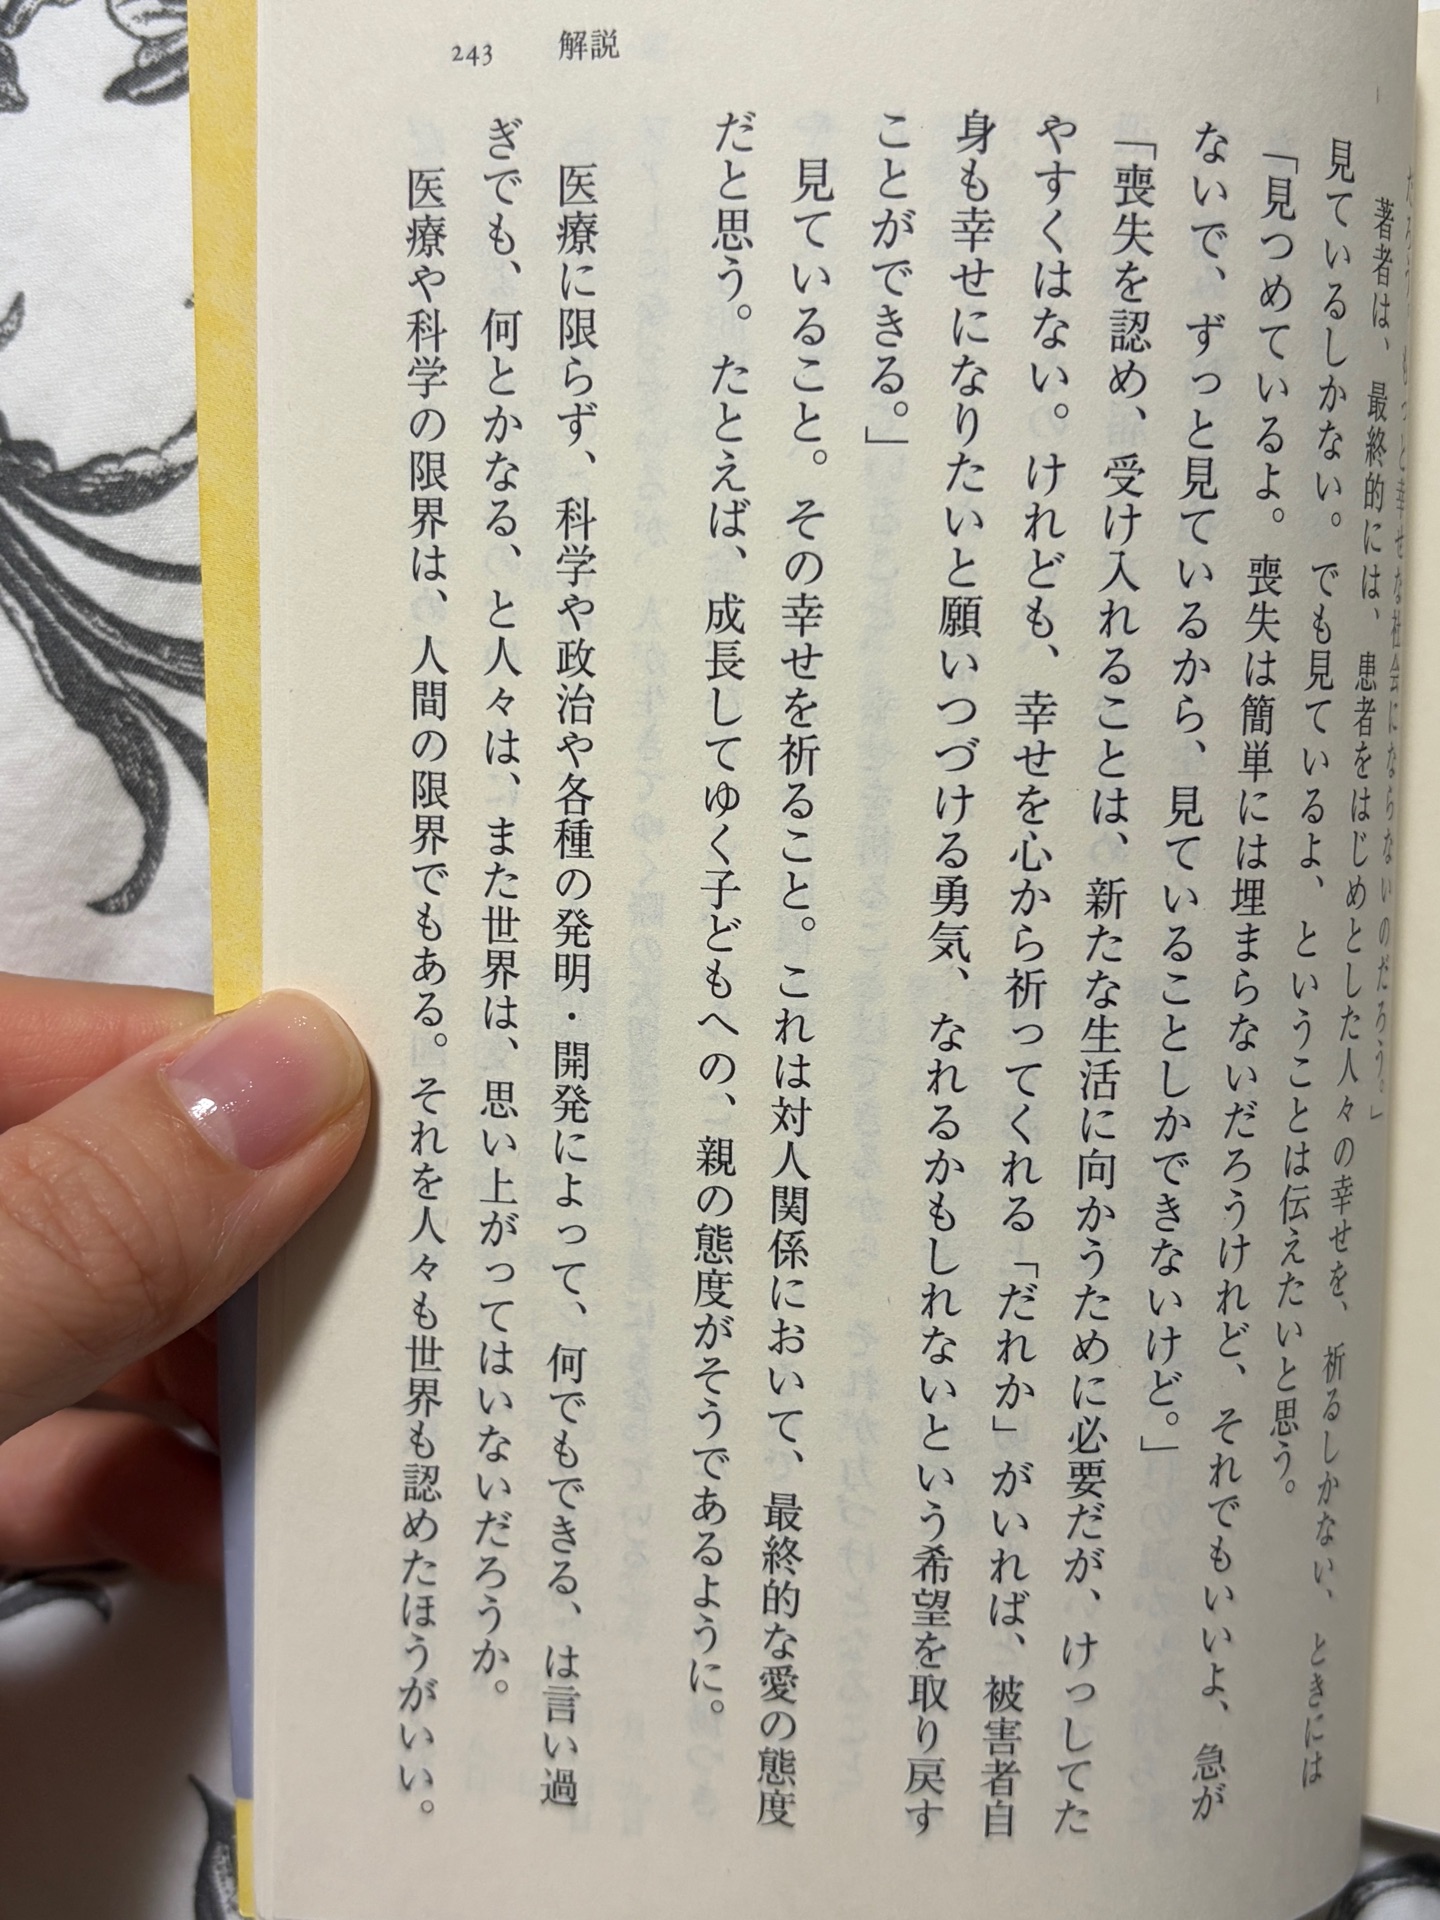 243 解説
だろう。もっと幸せな社会にならないのだろう。」
著者は、最終的には、患者をはじめとした人々の幸せを、祈るしかない、ときには
見ているしかない。でも見ているよ、ということは伝えたいと思う。
「見つめているよ。喪失は簡単には埋まらないだろうけれど、それでもいいよ、急が
ないで、ずっと見ているから、見ていることしかできないけど。」
「喪失を認め、受け入れることは、新たな生活に向かうために必要だが、けっしてた
やすくはない。けれども、幸せを心から祈ってくれる「だれか」がいれば、被害者自
身も幸せになりたいと願いつづける勇気、なれるかもしれないという希望を取り戻す
ことができる。」
見ていること。その幸せを祈ること。これは対人関係において、最終的な愛の態度
だと思う。たとえば、成長してゆく子どもへの、親の態度がそうであるように。
医療に限らず、科学や政治や各種の発明・開発によって、何でもできる、は言い過
ぎでも、何とかなる、と人々は、また世界は、思い上がってはいないだろうか。
医療や科学の限界は、人間の限界でもある。それを人々も世界も認めたほうがいい。